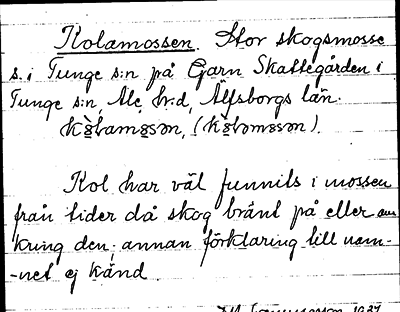 Kolamossen. Stor skogsmosse
s. i Tunge s:n på Garn Skattegården i
Tunge s:n, Ale hr:d, Älfsborgs län.
Kol har väl funnits i mossen
från tider då skog bränt på eller om-
kring den; annan förklaring till nam-
-net ej känd
1927